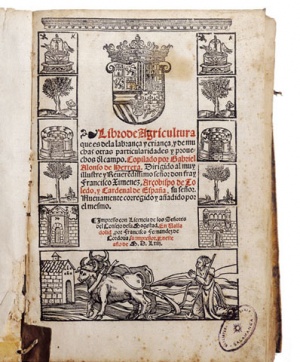 Libro de Agricultura
que es de la labrança y criança, y de mu
chas otras particularidades y proue
chos del campo. Copilado por Gabriel
Alonso de Herrera. Dirigido al muy
illustre y Reuerẽdissimo señor: don fray
Francisco Ximenez, Arçobispo de To
ledo, y Cardenal de España, su señor.
Nueuamente corregido y añadido por
el mesmo.
Impresso con Licencia de los Señores
del Consejo de su Magestad, En Valla
dolid, por Francisco Fernandez de
Cordoua
año de M. D. Lxiij.